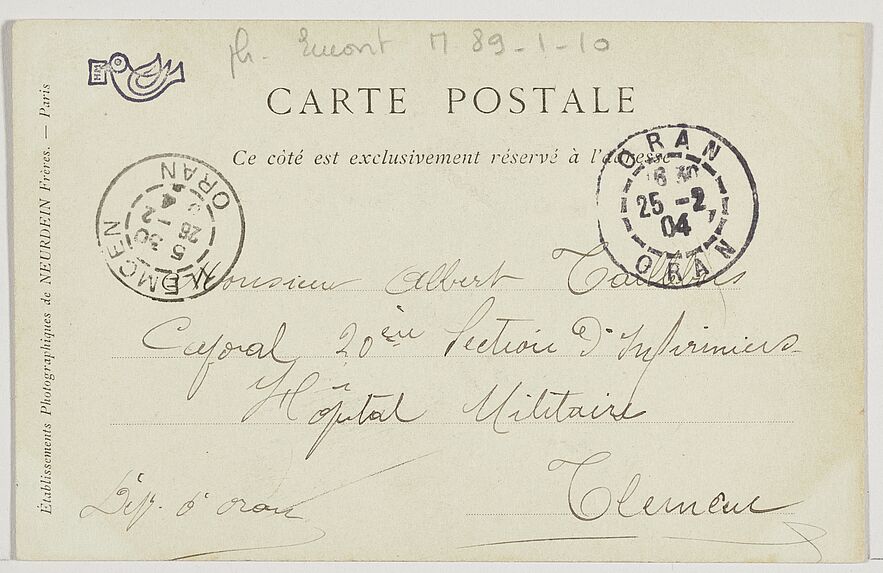 ph. Emont M 89-1-10
CARTE POSTALE
Ce côté est exclusivement réservé à l'adresse
ORAN
25 -2
04
ORAN
TLEMCEN
5 30
26 -2
ORAN
Monsieur Albert
Caporal 20ème Section d'Infirmiers
Hôpital Militaire
Tlemcen
Dép. d'Oran
Établissements Photographiques de NEURDEIN Frères. — Paris